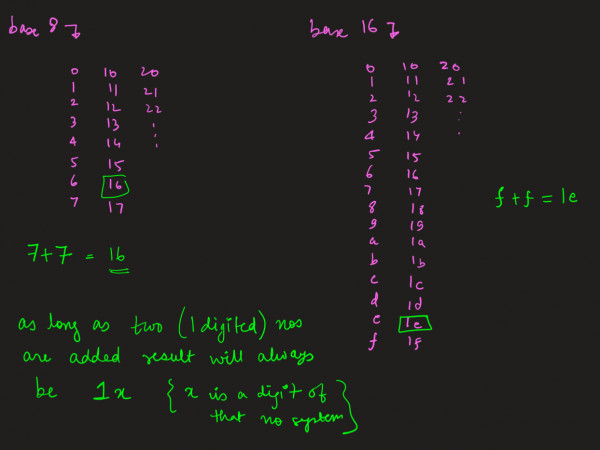 base 8
0 10 20
1 11 21
2 12 22
3 13 :
4 14 :
5 15
6 16
7 17
7+7 = 16
as long as two (1 digited) nos
are added result will always
be 1x { x is a digit of
that no system}
base 16
0 10 20
1 11 21
2 12 22
3 13 :
4 14 .
5 15
6 16
7 17
8 18
9 19
a 1a
b 1b
c 1c
d 1d
e 1e
f 1f
f+f = 1e